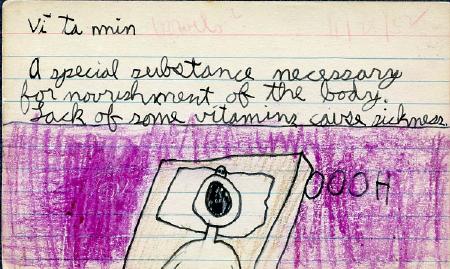 Vi ta min
A special substance necessary
for nourishment of the body.
Lack of some vitamins cause sickness.
OOOH